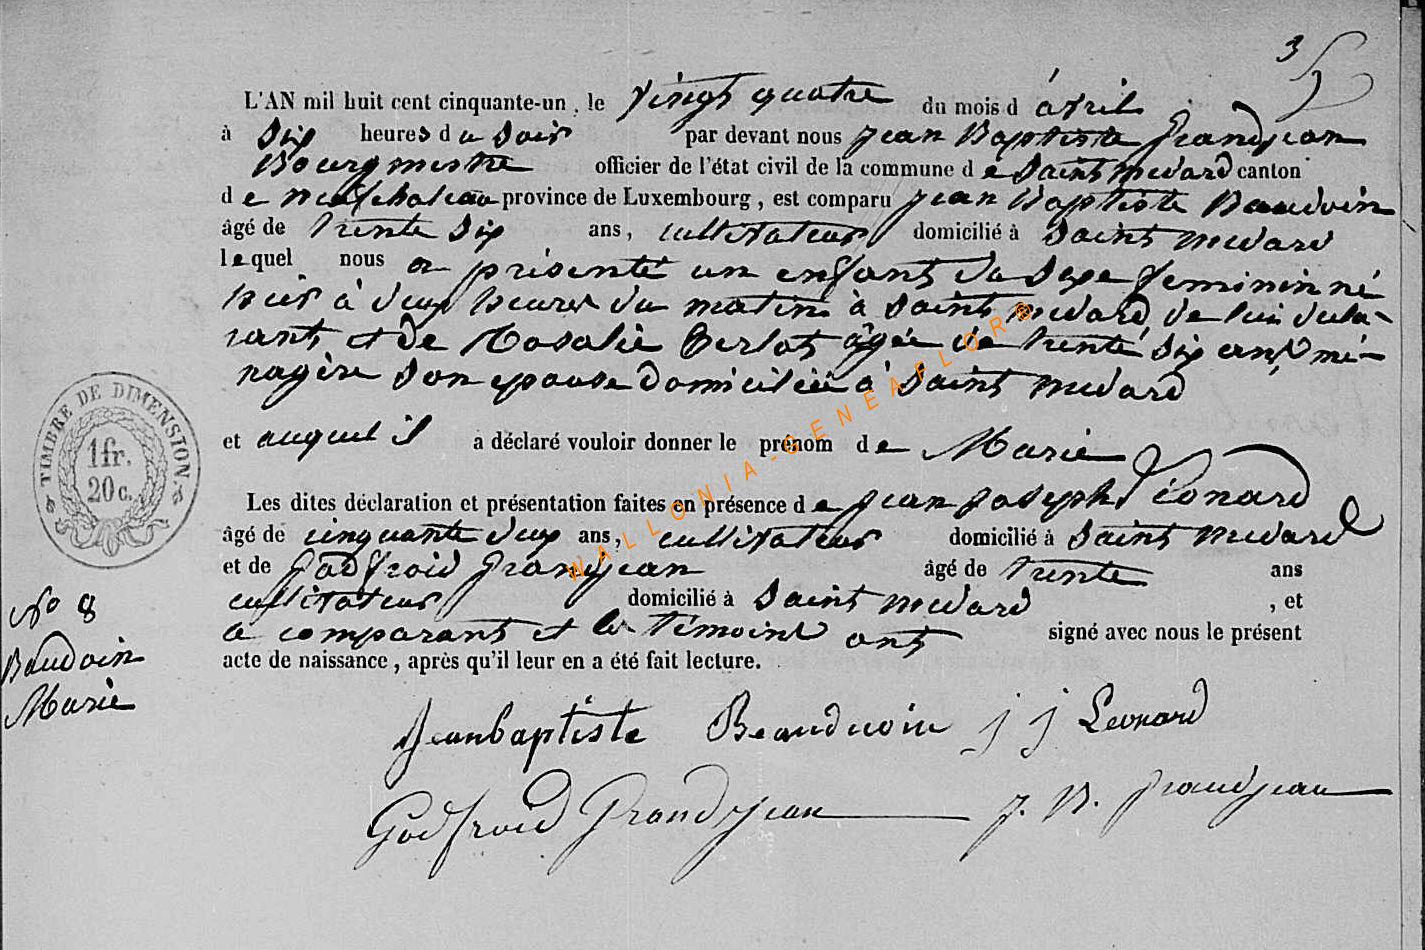 3
L'AN mil huit cent cinquante-un, le vingt quatre du mois d'avril
à six heures du soir par devant nous jean Baptiste Grandjean
Bourgmestre officier de l'état civil de la commune de Saint médard canton
de neufchateau province de Luxembourg, est comparu jean Baptiste Baudoin
âgé de trente six ans, cultivateur domicilié à Saint médard
lequel nous a présenté un enfant du Sexe feminin né
hier à deux heures du matin à Saint médard de lui décla-
rant et de Rosalie âgée de trente six ans, mé-
nagère Son epouse domiciliée à Saint médard
et auquel il a déclaré vouloir donner le prénom de Marie
Les dites déclaration et présentation faites en présence de jean joseph Léonard
âgé de cinquante deux ans, cultivateur domicilié à Saint médard
et de Godfroid Grandjean âgé de trente ans
cultivateur domicilié à Saint médard, et
le comparant et les témoins ont signé avec nous le présent
acte de naissance, après qu'il leur en a été fait lecture.
Jeanbaptiste Beauduoin j j Leonard
Godfroid Grandjean J. B. Grandjean
TIMBRE DE DIMENSION.
1fr.
20c.
No 8
Baudoin
Marie
WALLONIA-GENEAFLORE